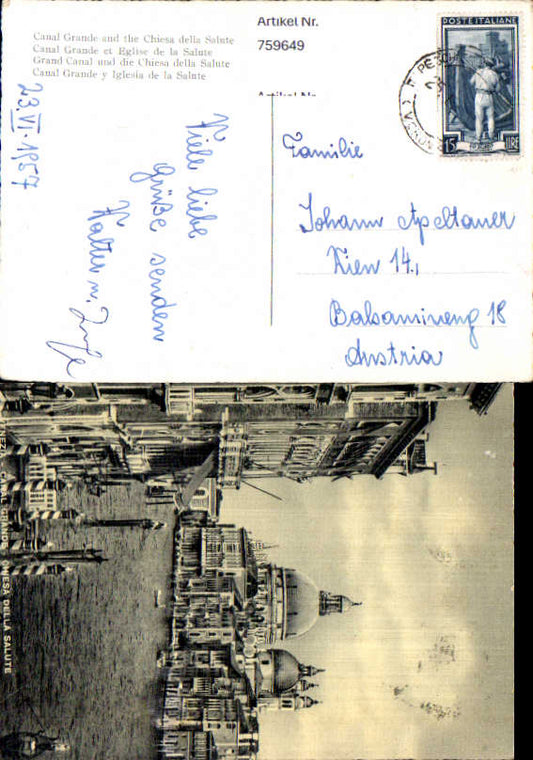 Canal Grande and the Chiesa della Salute
Canal Grande et Eglise de la Salute
Grand Canal und die Chiesa della Salute
Canal Grande y Iglesia de la Salute
Artikel Nr.
759649
POSTE ITALIANE
15 LIRE
23.VI.1957
Viele liebe
Grüße senden
Familie
Johann Apeltauer
Wien 14.,
Balsamineng 18
Austria
CANAL GRANDE CHIESA DELLA SALUTE